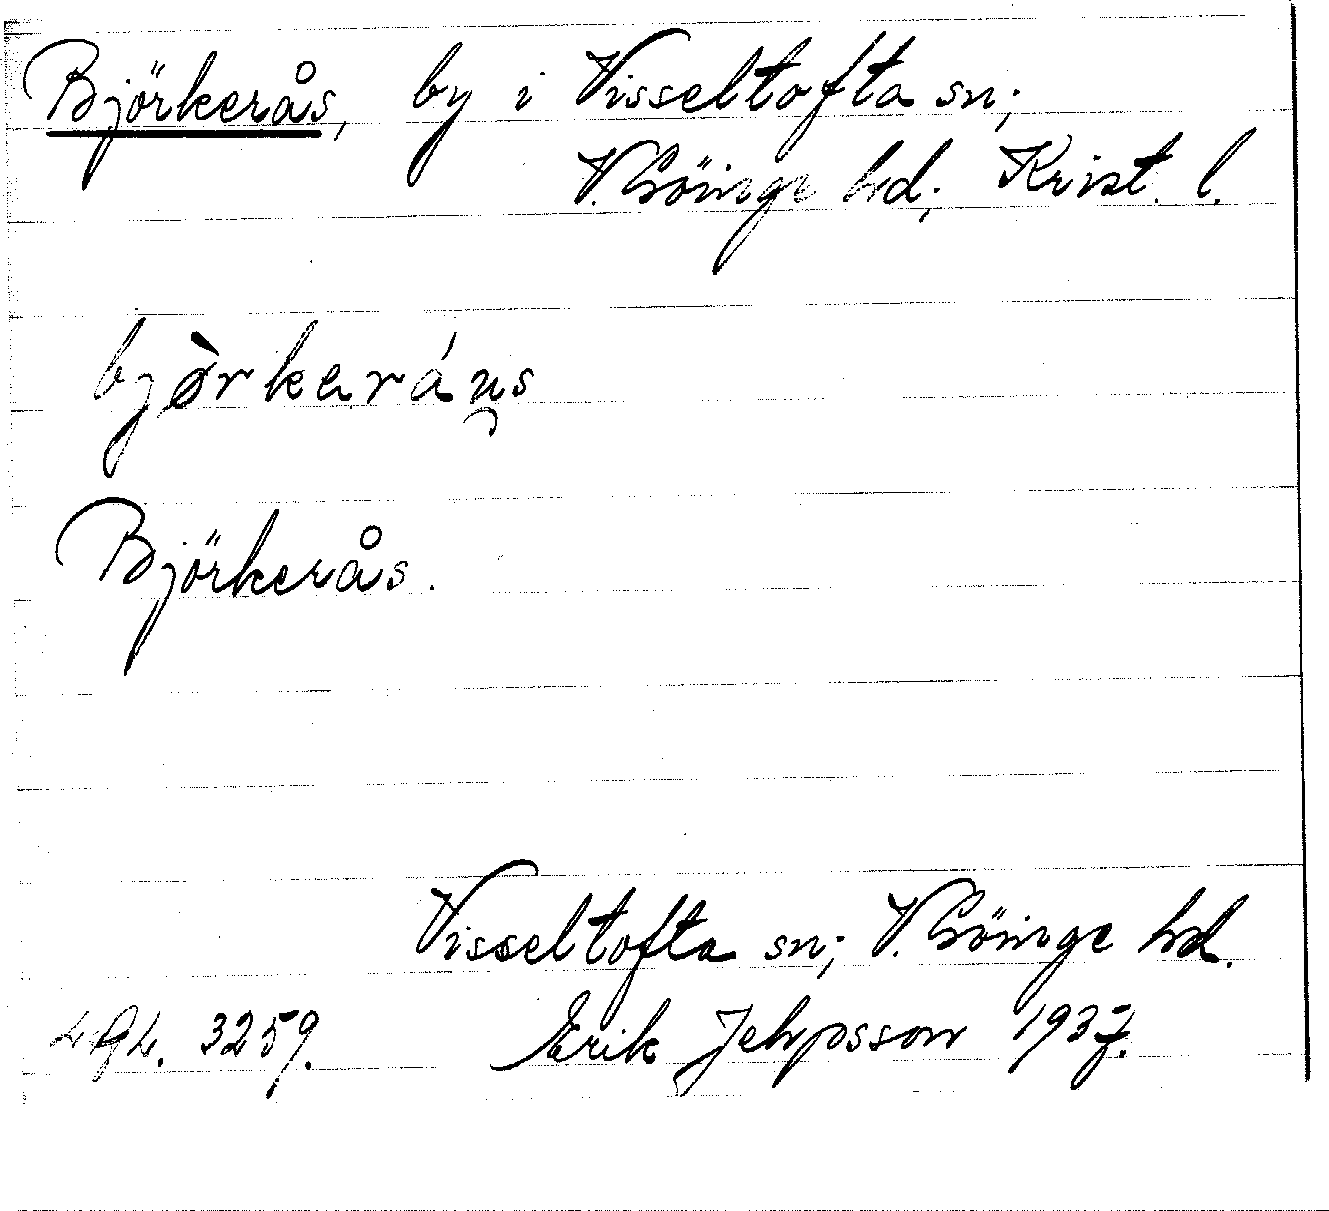 Björkerås, by i Visseltofta sn;
V. Göinge hd; Krist. l.
bjòrkaráu̯s
Björkerås.
Visseltofta sn; V. Göinge hd.
LAL. 3259. Erik Jehpsson 1937.